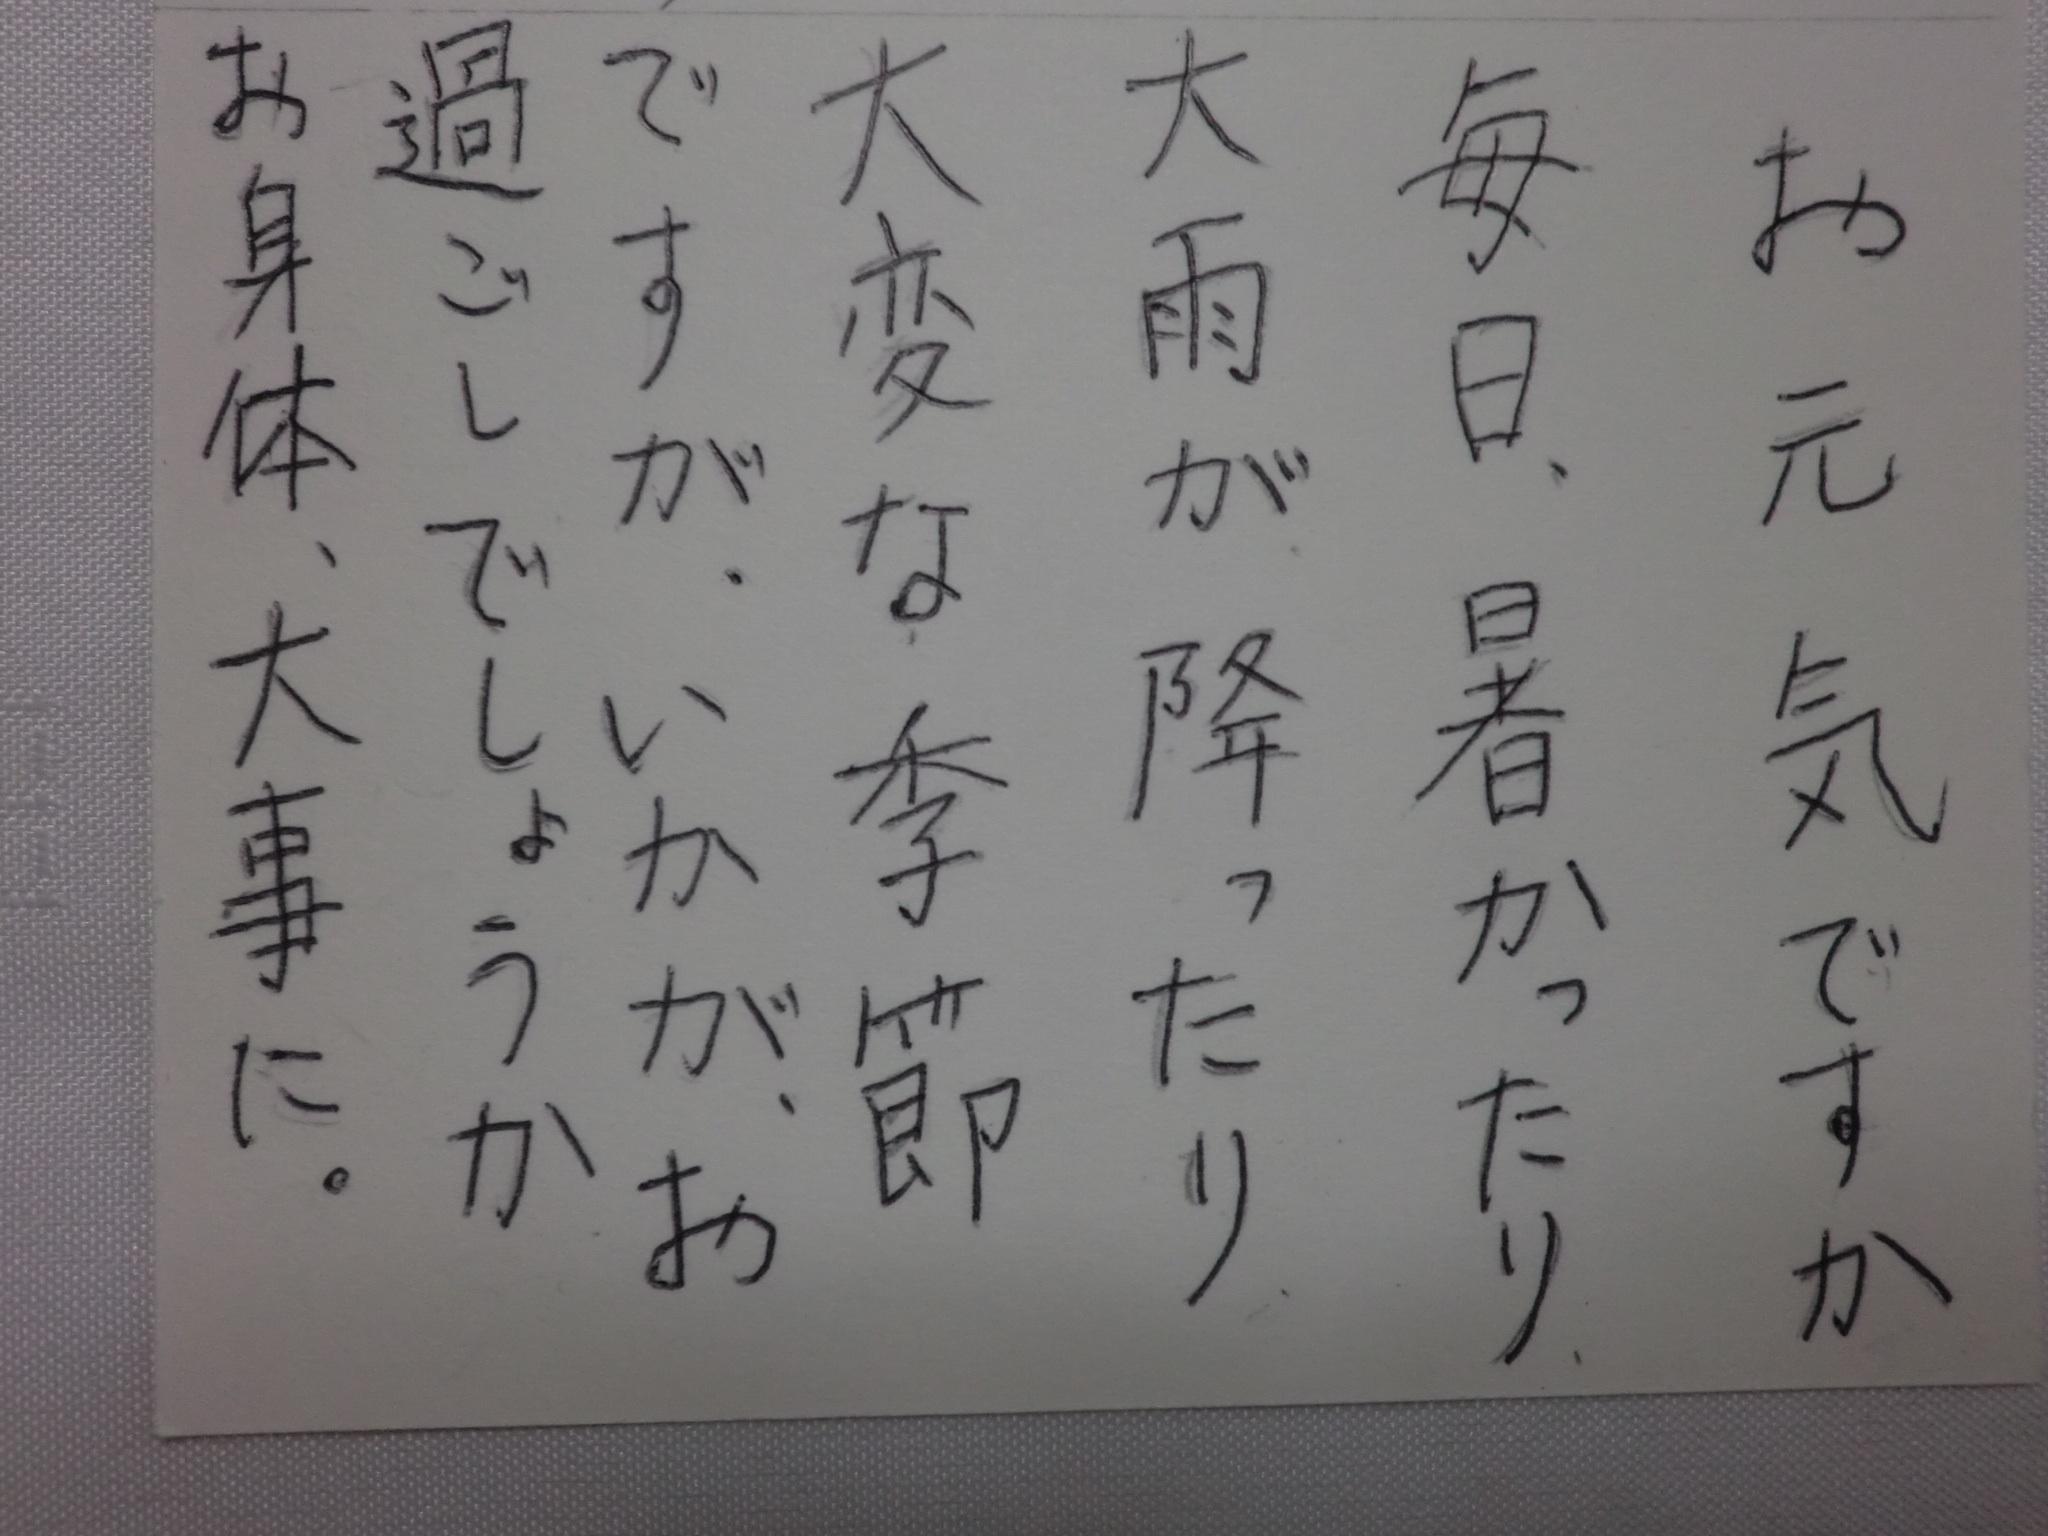 お元気ですか
毎日、暑かったり、
大雨が降ったり
大変な季節
ですが、いかがが、お
過ごしでしょうか
お身体、大事に。